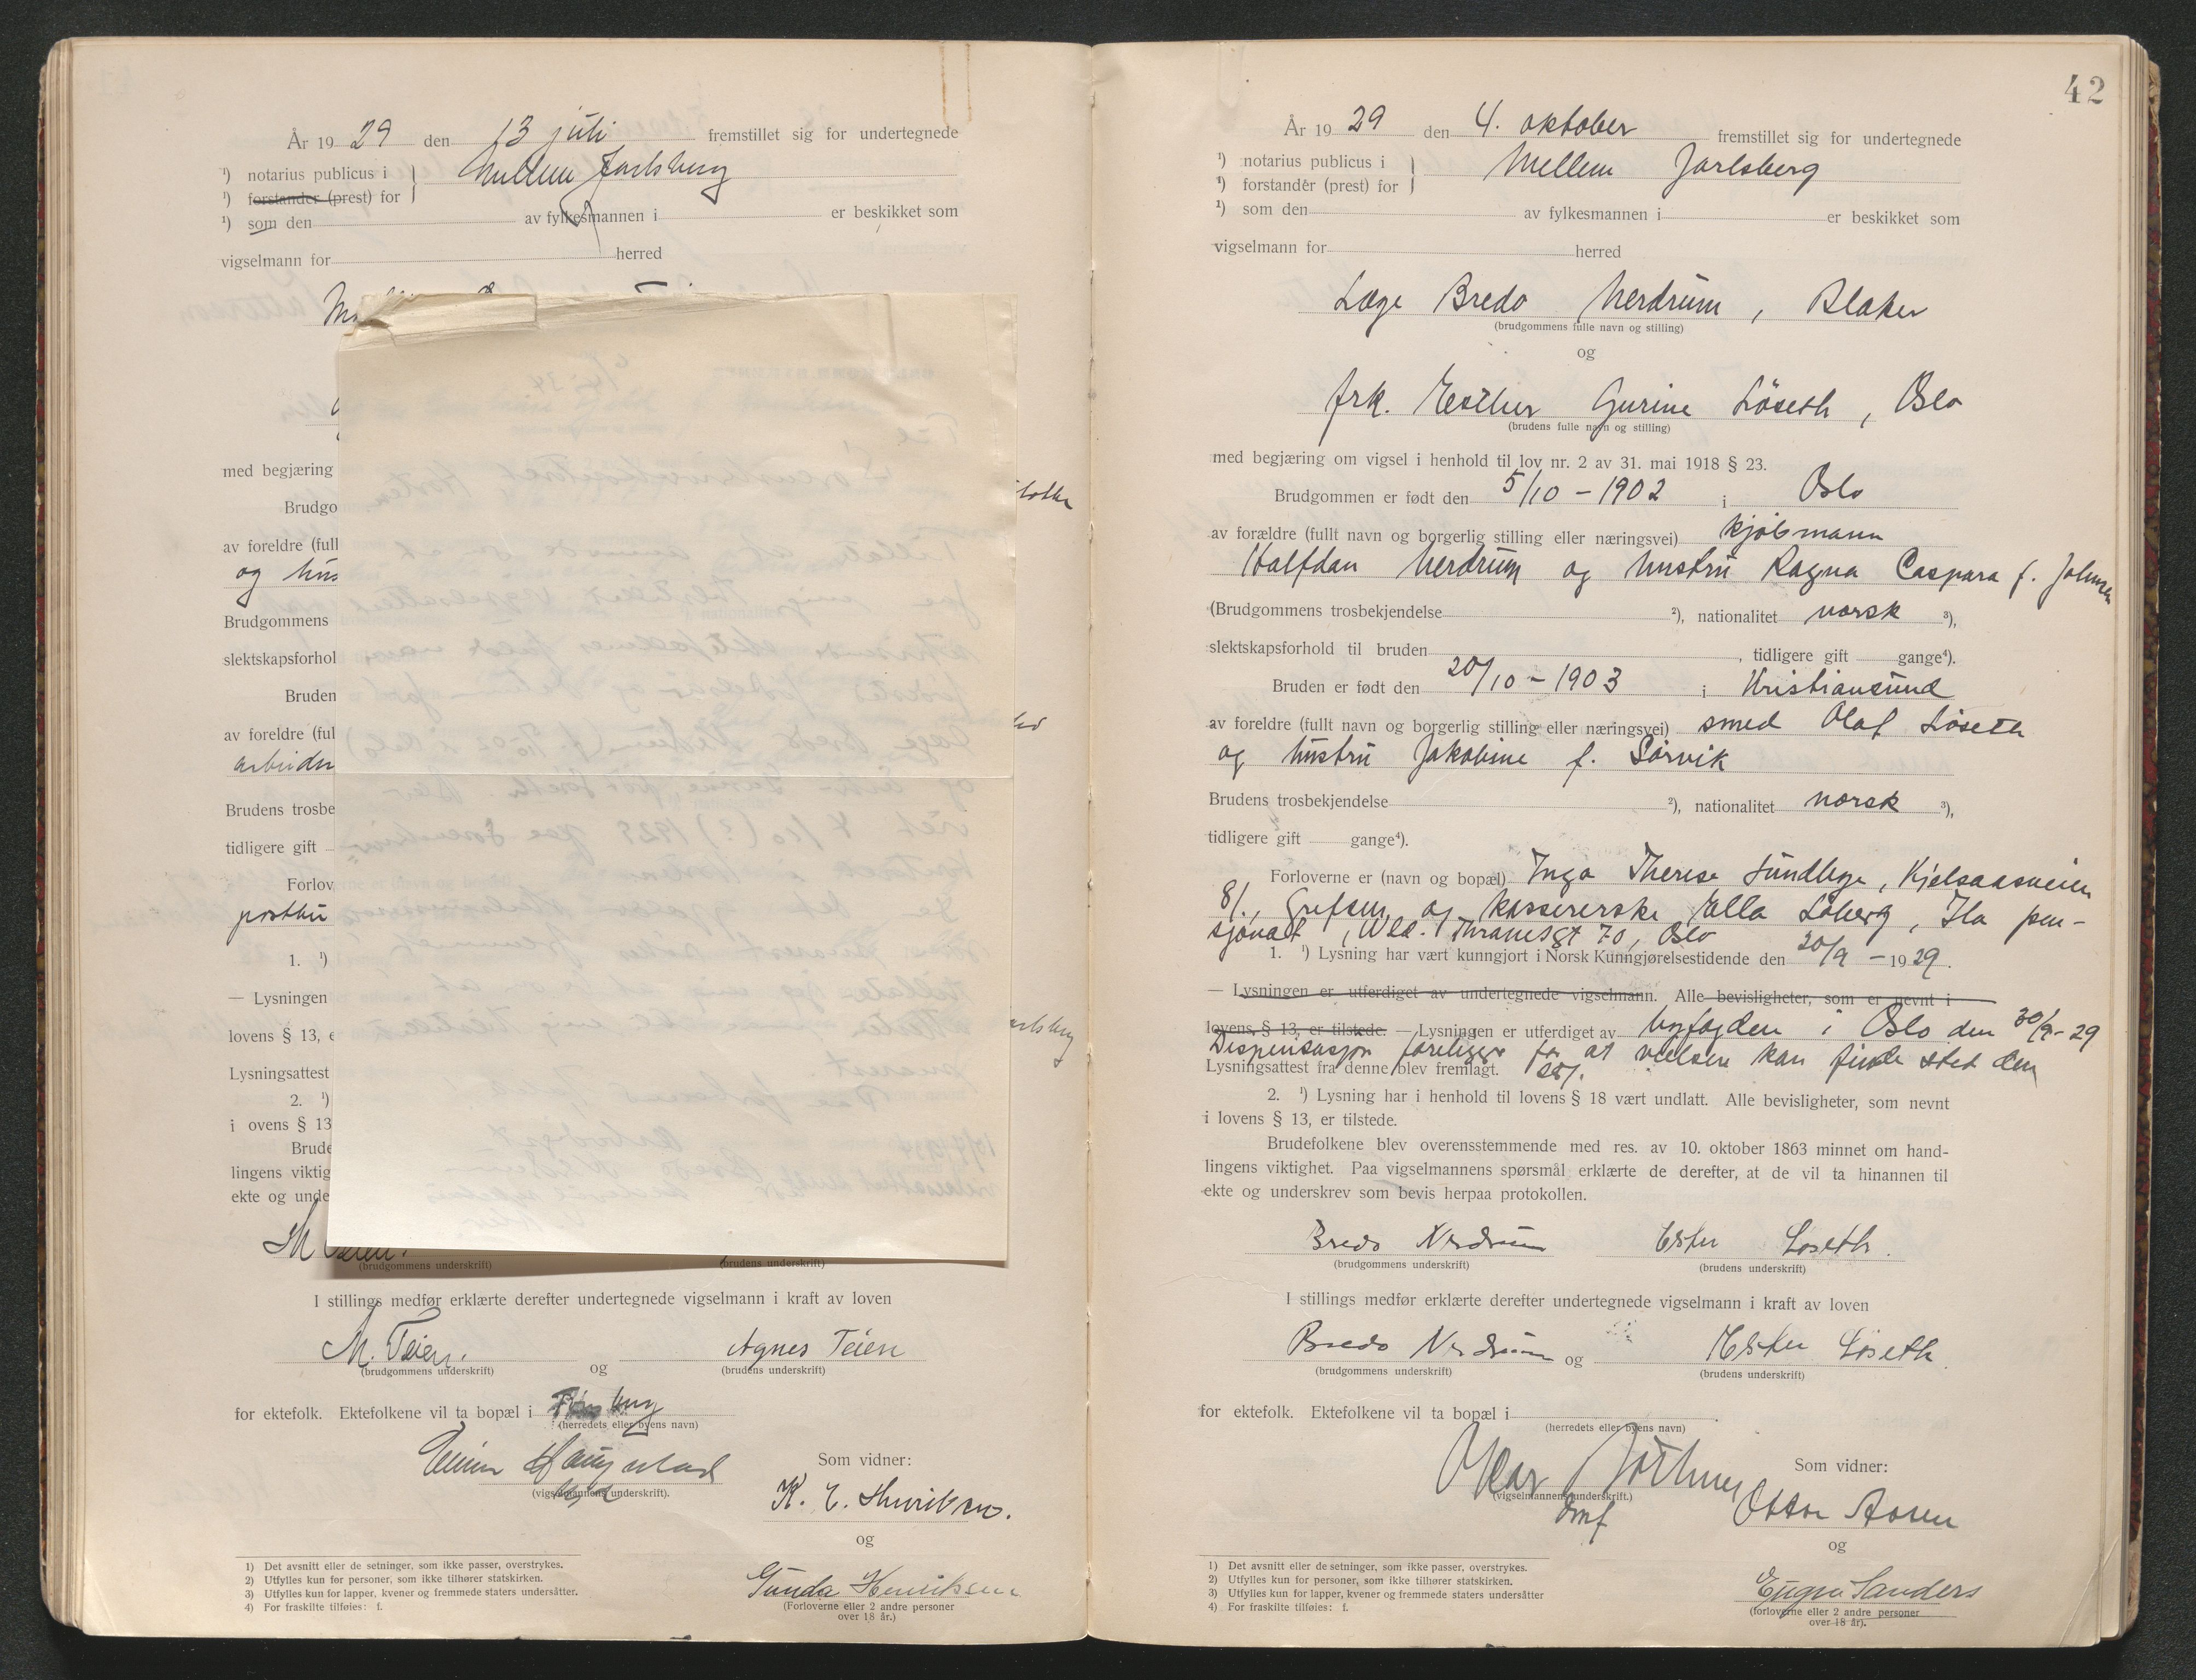 År 1929 den 13 juli fremstillet sig for undertegnede
¹) notarius publicus i
Mellem Jarlsberg
¹) forstander (prest) for
¹) som den av fylkesmannen i er beskikket som
vigselmann for herred
med begjæring
Brudgo
av foreldre (full
og hus
Brudgommens
slektskapsforhol
Bruden
av foreldre (ful
arbeider
Brudens trosbe
tidligere gift
Forlov
1. ¹)
— Lysningen
lovens § 13, e
Lysningsattest
2. ¹)
i ovens § 13
Brude
lingens viktig
ekte og unde
(brudgommens underskrift) (brudens underskrift)
I stillings medfør erklærte derefter undertegnede vigselmann i kraft av loven
M. Teien. og Agnes Teien
(brudgommens underskrift) (brudens underskrift)
for ektefolk. Ektefolkene vil ta bopæl i
(herredets eller byens navn)
(vigselmannens underskrift).
Som vidner:
K. E. Henriksen.
og
Gunda Henriksen
(Forloverne eller 2 andre personer
over 18 år.)
1) Det avsnitt eller de setninger, som ikke passer, overstrykes.
2) Utfylles kun for personer, som ikke tilhører statskirken.
3) Utfylles kun for lapper, kvener og fremmede staters undersåtter.
4) For fraskilte tilføies: f.
42
År 1929 den 4. oktober fremstillet sig for undertegnede
¹) notarius publicus i
Mellem Jarlsberg
¹) forstander (prest) for
¹) som den av fylkesmannen i er beskikket som
vigselmann for herred
Læge Bredo Nerdrum, Blaker
(brudgommens fulle navn og stilling)
og
frk. Esther Gurine Løseth, Oslo
(brudens fulle navn og stilling)
med begjæring om vigsel i henhold til lov nr. 2 av 31. mai 1918 § 23.
Brudgommen er født den 5/10 - 1902 i Oslo
av forældre (fullt navn og borgerlig stilling eller næringsvei)
Halfdan Nerdrum og hustru Ragna Caspara f. Johnsen
(Brudgommens trosbekjendelse ²), nationalitet norsk ³),
slektskapsforhold til bruden , tidligere gift gange⁴).
Bruden er født den 20/10 - 1903 i Kristiansund
av foreldre (fullt navn og borgerlig stilling eller næringsvei) smed Olaf Løseth
og hustru Jakobine f. Sørvik
Brudens trosbekjendelse ²), nationalitet norsk ³),
tidligere gift gange⁴).
Forloverne er (navn og bopæl) Inga Therese Sundlye, Kjelsaasveien
81, Grefsen og kassererske Ella Løberg, Ila pen-
sjonat, Wld. Thranesgt 70, Oslo
1. ¹) Lysning har vært kunngjort i Norsk Kunngjørelsestidende den 20/9 - 1929.
— Lysningen er utferdiget av undertegnede vigselmann. Alle bevisligheter, som er nevnt i
lovens § 13, er tilstede. — Lysningen er utferdiget av byfogden i Oslo den 30/9-29
Dispensasjon foreligger for at vielsen kan finde sted den
Lysningsattest fra denne blev fremlagt.
2. ¹) Lysning har i henhold til lovens § 18 vært undlatt. Alle bevisligheter, som nevnt
i lovens § 13, er tilstede.
Brudefolkene blev overensstemmende med res. av 10. oktober 1863 minnet om hand-
lingens viktighet. Paa vigselmannens spørsmål erklærte de derefter, at de vil ta hinannen til
ekte og underskrev som bevis herpaa protokollen.
Bredo Nerdrum Ester Løseth.
(brudgommens underskrift) (brudens underskrift)
I stillings medfør erklærte derefter undertegnede vigselmann i kraft av loven
Bredo Nerdrum og Ester Løseth.
(brudgommens underskrift) (brudens underskrift)
for ektefolk. Ektefolkene vil ta bopæl i
(herredets eller byens navn)
(vigselmannens underskrift.)
Som vidner:
Ottar Aasen
og
(forloverne eller 2 andre personer
over 18 år).
1) Det avsnitt eller de setninger, som ikke passer, overstrykes.
2) Utfylles kun for personer, som ikke tilhører statskirken.
3) Utfylles kun for lapper, kvener og fremmede staters undersåtter
4) For fraskilte tilføies: f.